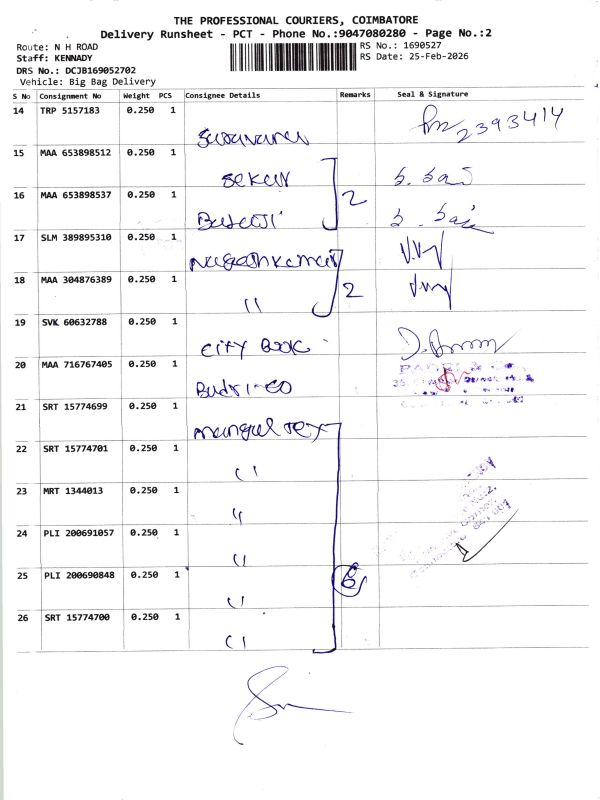 THE PROFESSIONAL COURIERS, COIMBATORE
Delivery Runsheet - PCT - Phone No.:9047080280 - Page No.:2
Route: N H ROAD
RS No.: 1690527
Staff: KENNADY
RS Date: 25-Feb-2026
DRS No.: DCJB169052702
Vehicle: Big Bag Delivery
S No Consignment No Weight PCS Consignee Details Remarks Seal & Signature
14 TRP 5157183 0.250 1 2393414
15 MAA 653898512 0.250 1 Sekar
16 MAA 653898537 0.250 1 2
17 SLM 389895310 0.250 1
18 MAA 304876389 0.250 1 " 2
19 SVK 60632788 0.250 1 City Book
20 MAA 716767405 0.250 1
21 SRT 15774699 0.250 1 Mangal Tex
22 SRT 15774701 0.250 1 "
23 MRT 1344013 0.250 1 "
24 PLI 200691057 0.250 1 "
25 PLI 200690848 0.250 1 " 6
26 SRT 15774700 0.250 1 "